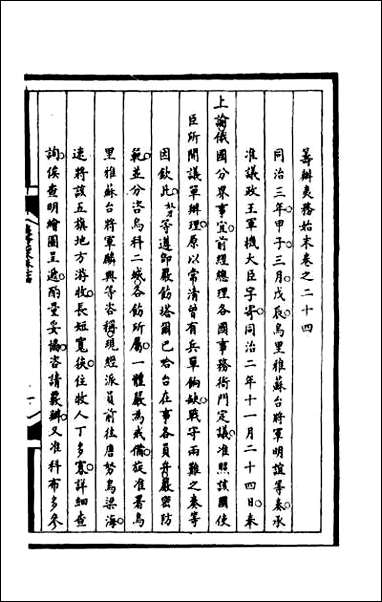 籌辦夷務始末卷之二十四
同治三年甲子三月戊辰烏里雅蘇台將軍明誼等奏承
准議政王軍機大臣字寄同治二年十一月二十四日奉
上諭俄國分界事宜前經總理各國事務衙門定議准照該國使
臣所開議單辦理原以常清曾有兵單餉缺戰守兩難之奏等
因欽此等遵即嚴飭塔爾巴哈台在事各員弁嚴密防
範並分咨烏科二城各飭所屬一體嚴為戒備旋准署烏
里雅蘇台將軍麟興等咨稱現經派員前往唐努烏梁海
速將該五旗地方游牧長短寬狹住牧人丁多寡詳細查
詢俟查明繪圖呈遞酌量妥協咨請覈辦又准科布多參